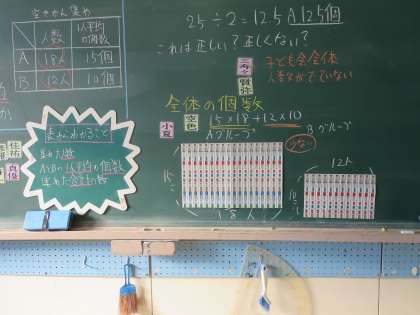 空きかん集め
人数
1人平均の個数
A 18人 15個
B 12人 10個
25÷2=12.5 A12.5個
これは正しい?正しくない?
子ども会全体
人数がでていない
全体の個数
15×18+12×10
Aグループ
Bグループ
少ない
18人
12人
表からわかること
集めた人数
AとBの1人平均の個数